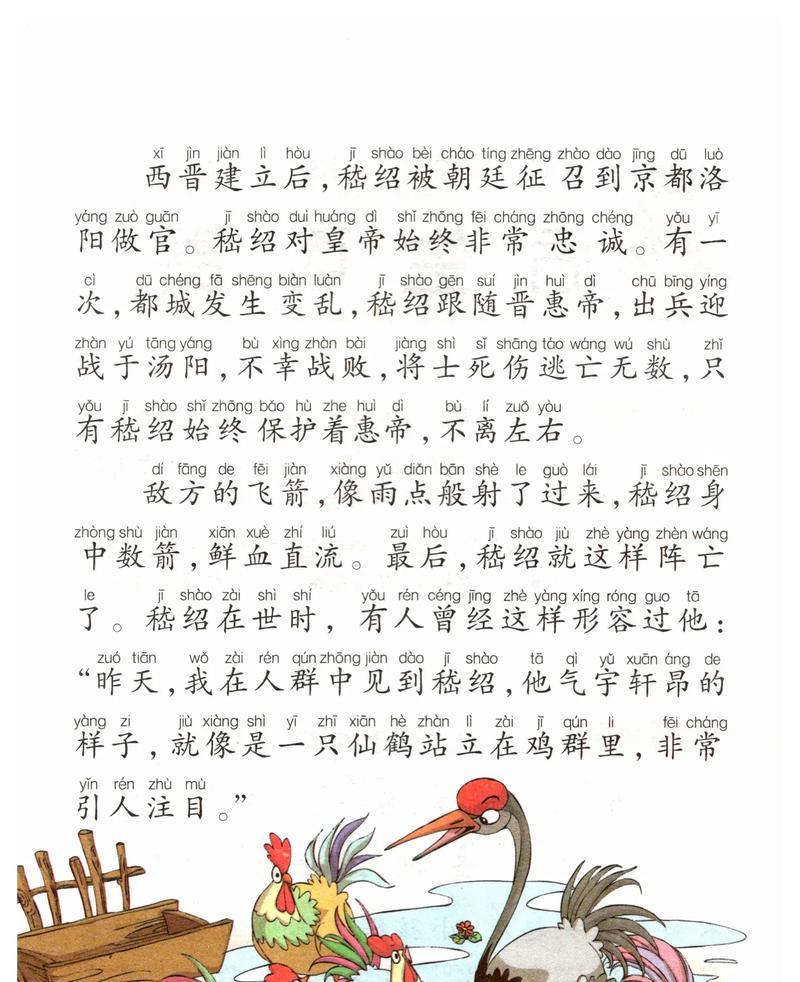 xī jìn jiàn lì hòu jī shào bèi cháo tíng zhēng zhào dào jīng dū luò
西晋建立后，嵇绍被朝廷征召到京都洛
yáng zuò guān jī shào duì huáng dì shǐ zhōng fēi cháng zhōng chéng yǒu yī
阳做官。嵇绍对皇帝始终非常忠诚。有一
cì dū chéng fā shēng biàn luàn jī shào gēn suí jìn huì dì chū bīng yíng
次，都城发生变乱，嵇绍跟随晋惠帝，出兵迎
zhàn yú tāng yáng bù xìng zhàn bài jiàng shì sǐ shāng táo wáng wú shù zhǐ
战于汤阳，不幸战败，将士死伤逃亡无数，只
yǒu jī shào shǐ zhōng bǎo hù zhe huì dì bù lí zuǒ yòu
有嵇绍始终保护着惠帝，不离左右。
dí fāng de fēi jiàn xiàng yǔ diǎn bān shè le guò lái jī shào shēn
敌方的飞箭，像雨点般射了过来，嵇绍身
zhòng shù jiàn xiān xuè zhí liú zuì hòu jī shào jiù zhè yàng zhèn wáng
中数箭，鲜血直流。最后，嵇绍就这样阵亡
le jī shào zài shì shí yǒu rén céng jīng zhè yàng xíng róng guo tā
了。嵇绍在世时，有人曾经这样形容过他：
zuó tiān wǒ zài rén qún zhōng jiàn dào jī shào tā qì yǔ xuān áng de
“昨天，我在人群中见到嵇绍，他气宇轩昂的
yàng zi jiù xiàng shì yī zhī xiān hè zhàn lì zài jī qún li fēi cháng
样子，就像是一只仙鹤站立在鸡群里，非常
yǐn rén zhù mù
引人注目。”